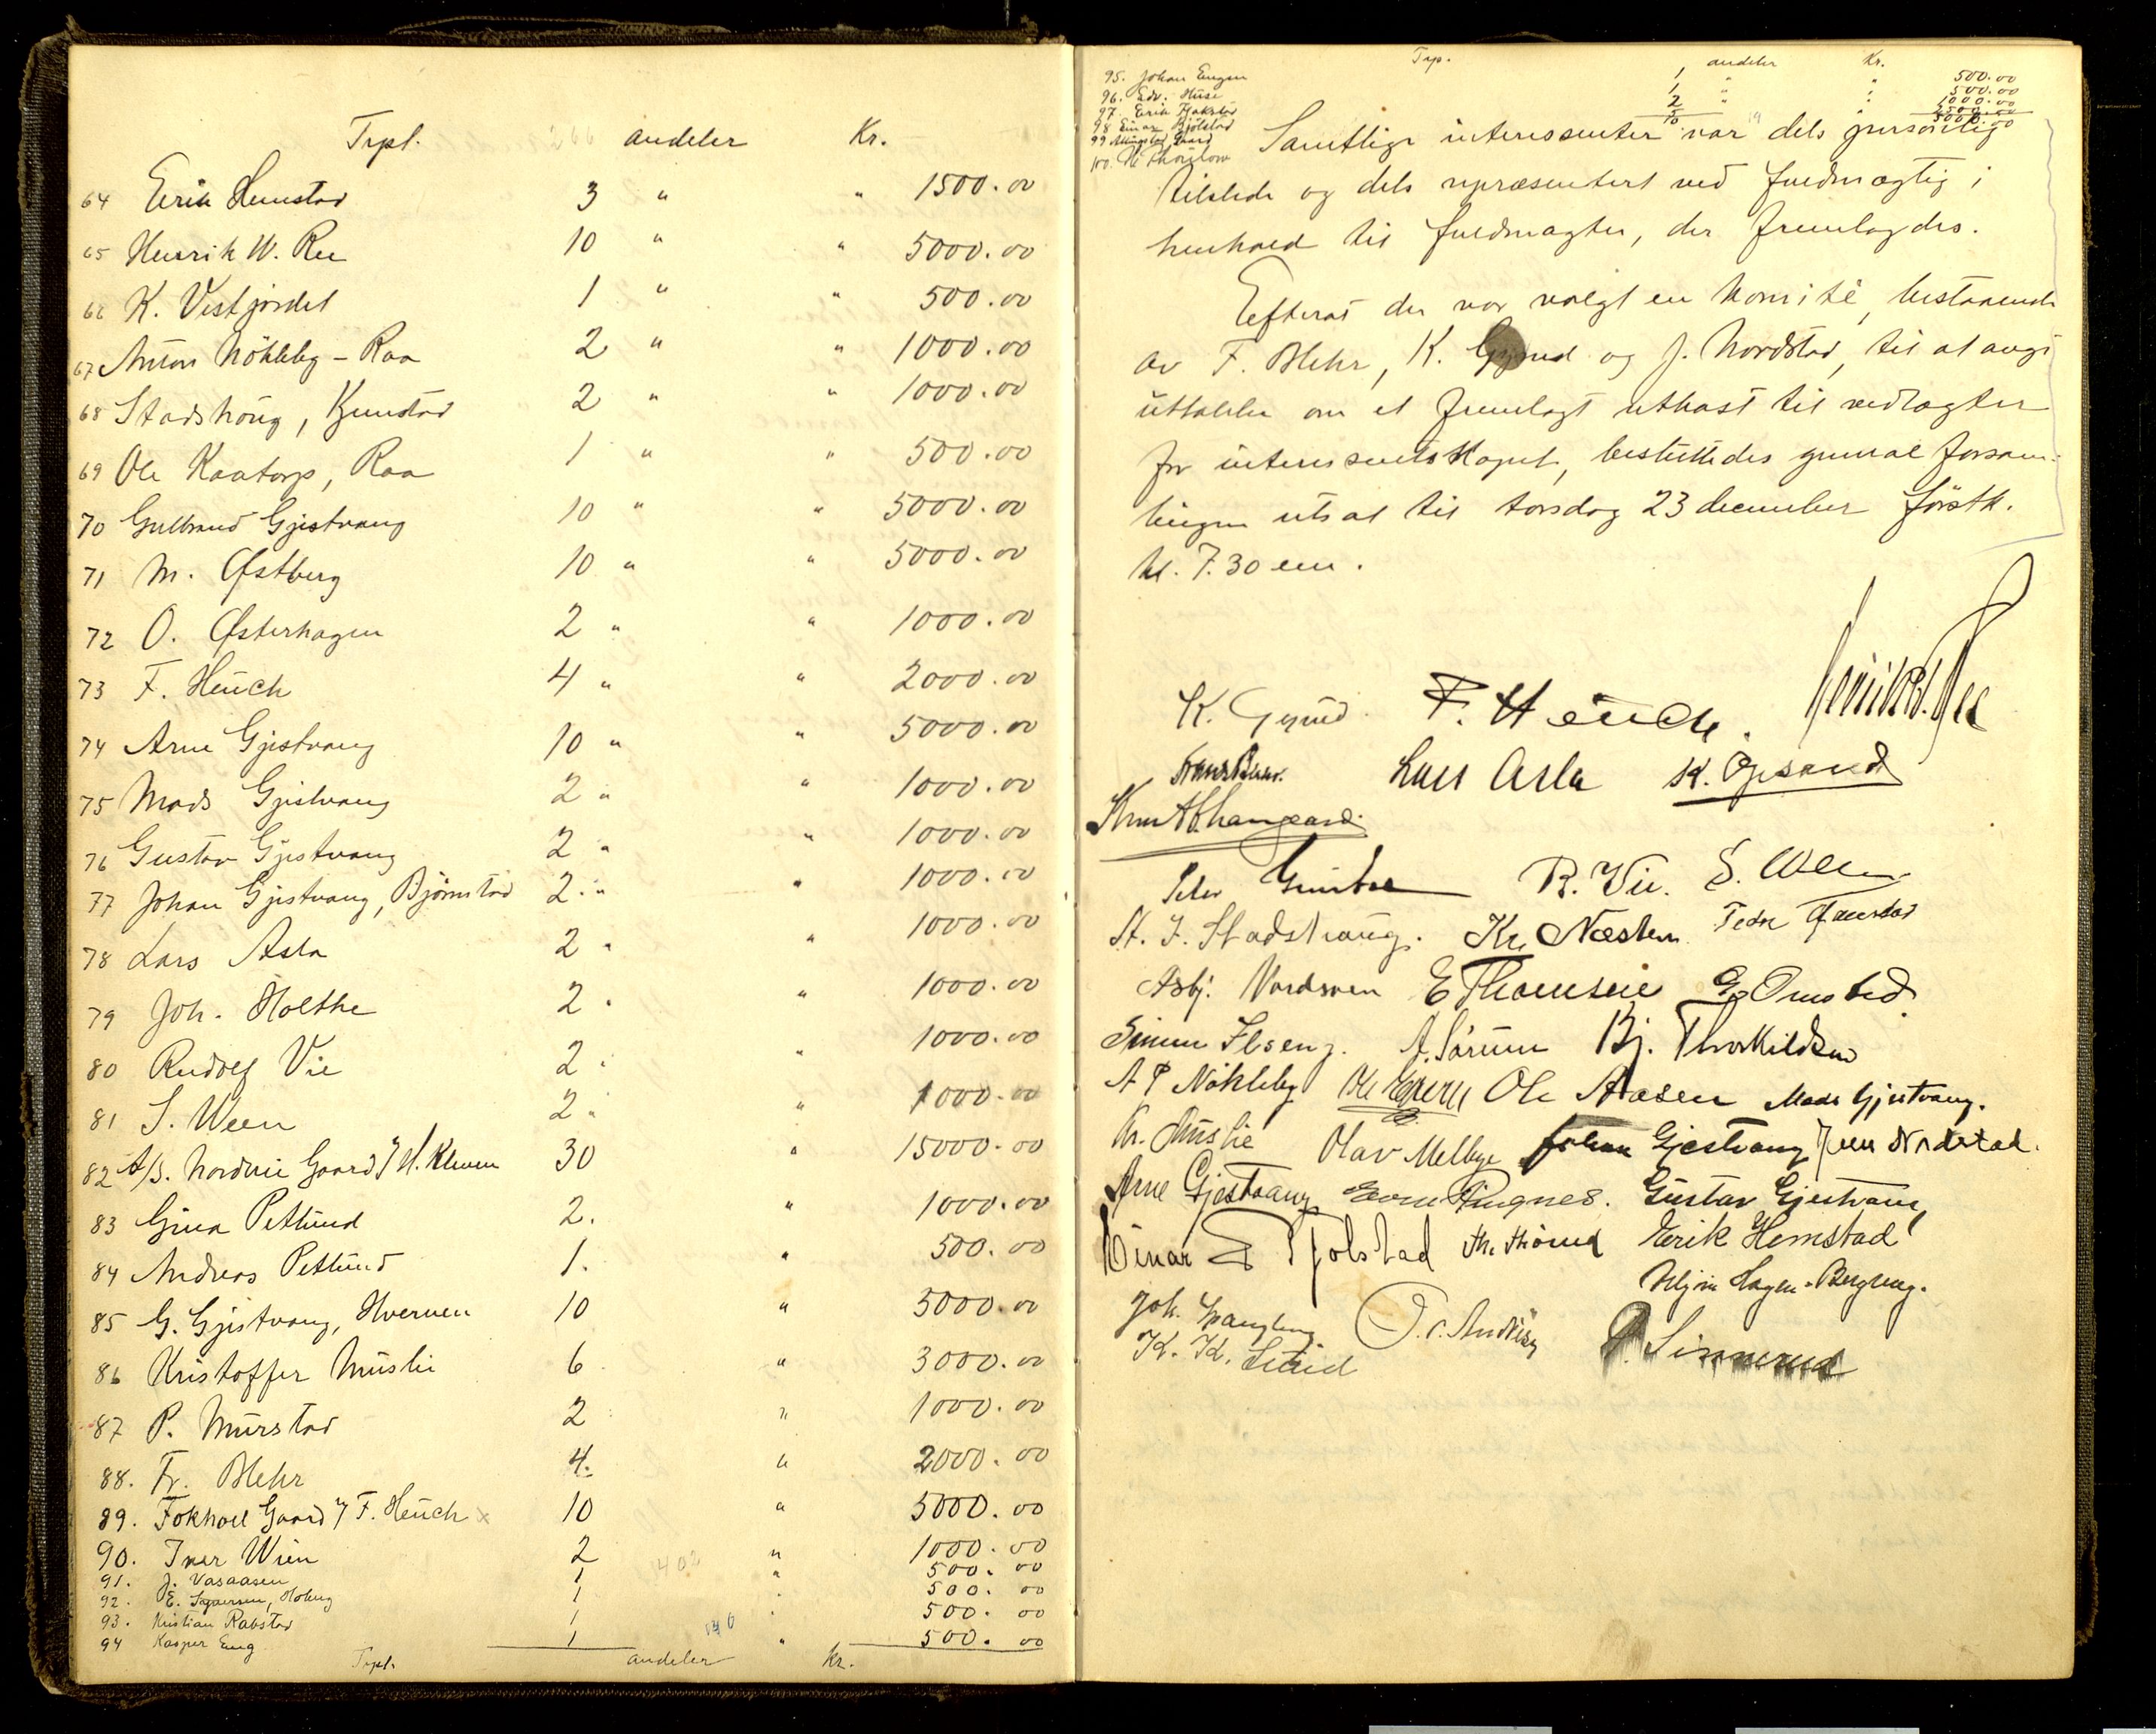 Trpt. andeler Kr.
64 Erik Hemstad 3 " " 1500.00
65 Henrik W. Ree 10 " " 5000.00
66 K. Vestjordet 1 " " 500.00
67 Anton Nökleby - Raa 2 " " 1000.00
68 Stadshoug, Kjemstad 2 " " 1000.00
69 Ole Kaatorp, Raa 1 " " 500.00
70 Gulbrand Gjestvang 10 " " 5000.00
71 M. Østberg 10 " " 5000.00
72 O. Østerhagen 2 " " 1000.00
73 F. Heuch 4 " " 2000.00
74 Arne Gjestvang 10 " " 5000.00
75 Mads Gjestvang 2 " " 1000.00
76 Gustav Gjestvang 2 " " 1000.00
77 Johan Gjestvang, Björnstad 2 " " 1000.00
78 Lars Asla 2 " " 1000.00
79 Joh. Holthe 2 " " 1000.00
80 Rudolf Vie 2 " " 1000.00
81 S. Ween 2 " " 1000.00
82 A/S. Nordvie Gaard v/ H. Kleven 30 " 15000.00
83 Gina Petlund 2. " 1000.00
84 Andreas Petlund 1. " 500.00
85 G. Gjestvang, Hverven 10 " 5000.00
86 Kristoffer Muslie 6 " 3000.00
87 P. Murstad 2 " 1000.00
88. Fr. Blehr 4. " 2000.00
89. Fokholl Gaard v/ F. Heuch x 10 " 5000.00
90. Iver Wien 2 " 1000.00
91. J. Vasaasen 1 " 500.00
92. E. Hoberg 1 " 500.00
93. Kristian Rabstad 1 " 500.00
94 Kasper Eng 1 " 500.00
Trpt. andeler Kr.
Trp. andeler Kr.
95. Johan Engen 1 " " 500.00
96. Edv. Huse 1 " " 500.00
97. Erik 2 " " 1000.00
98 Einar Bjölstad
99 Gaard 10 5000.00
100.
Samtlige interessenter var dels personlig
tilstede og dels repræsentert ved fuldmægtig i
henhold til fuldmagter, der fremlagdes.
Efterat der var valgt en komité, bestaaende
av F. Blehr, K. Gjerud og J. Nordstad, til at avgi
uttalelse om et fremlagt utkast til vedtægter
for interessentskapet, besluttedes general forsam-
lingen utsat til torsdag 23 december förstk.
kl. 7.30 em.
K. Gjerud. F. Heuch. Henrik W. Ree
Frans Blehr. Lars Asla K. Opsand
Peter R. Vie. S. Ween
St. J. Stadshaug. Kr. Næsten Peder
Asbj. Nordsveen E Thomsen G. Omsted
Simen Ilseng. A. Sörum Bj. Thorkildsen
A P Nökleby Ole Ole Aasen Mads Gjestvang.
Kr. Muslie Olav Melbye Johan Gjestvang Jens Nordstad.
Arne Gjestvang Even Ringnes. Gustav Gjestvang
Einar E Bjölstad Erik Hemstad
Hagen-Bergseng.
Joh. Spangberg
K. K. Lund P. Sinnerud